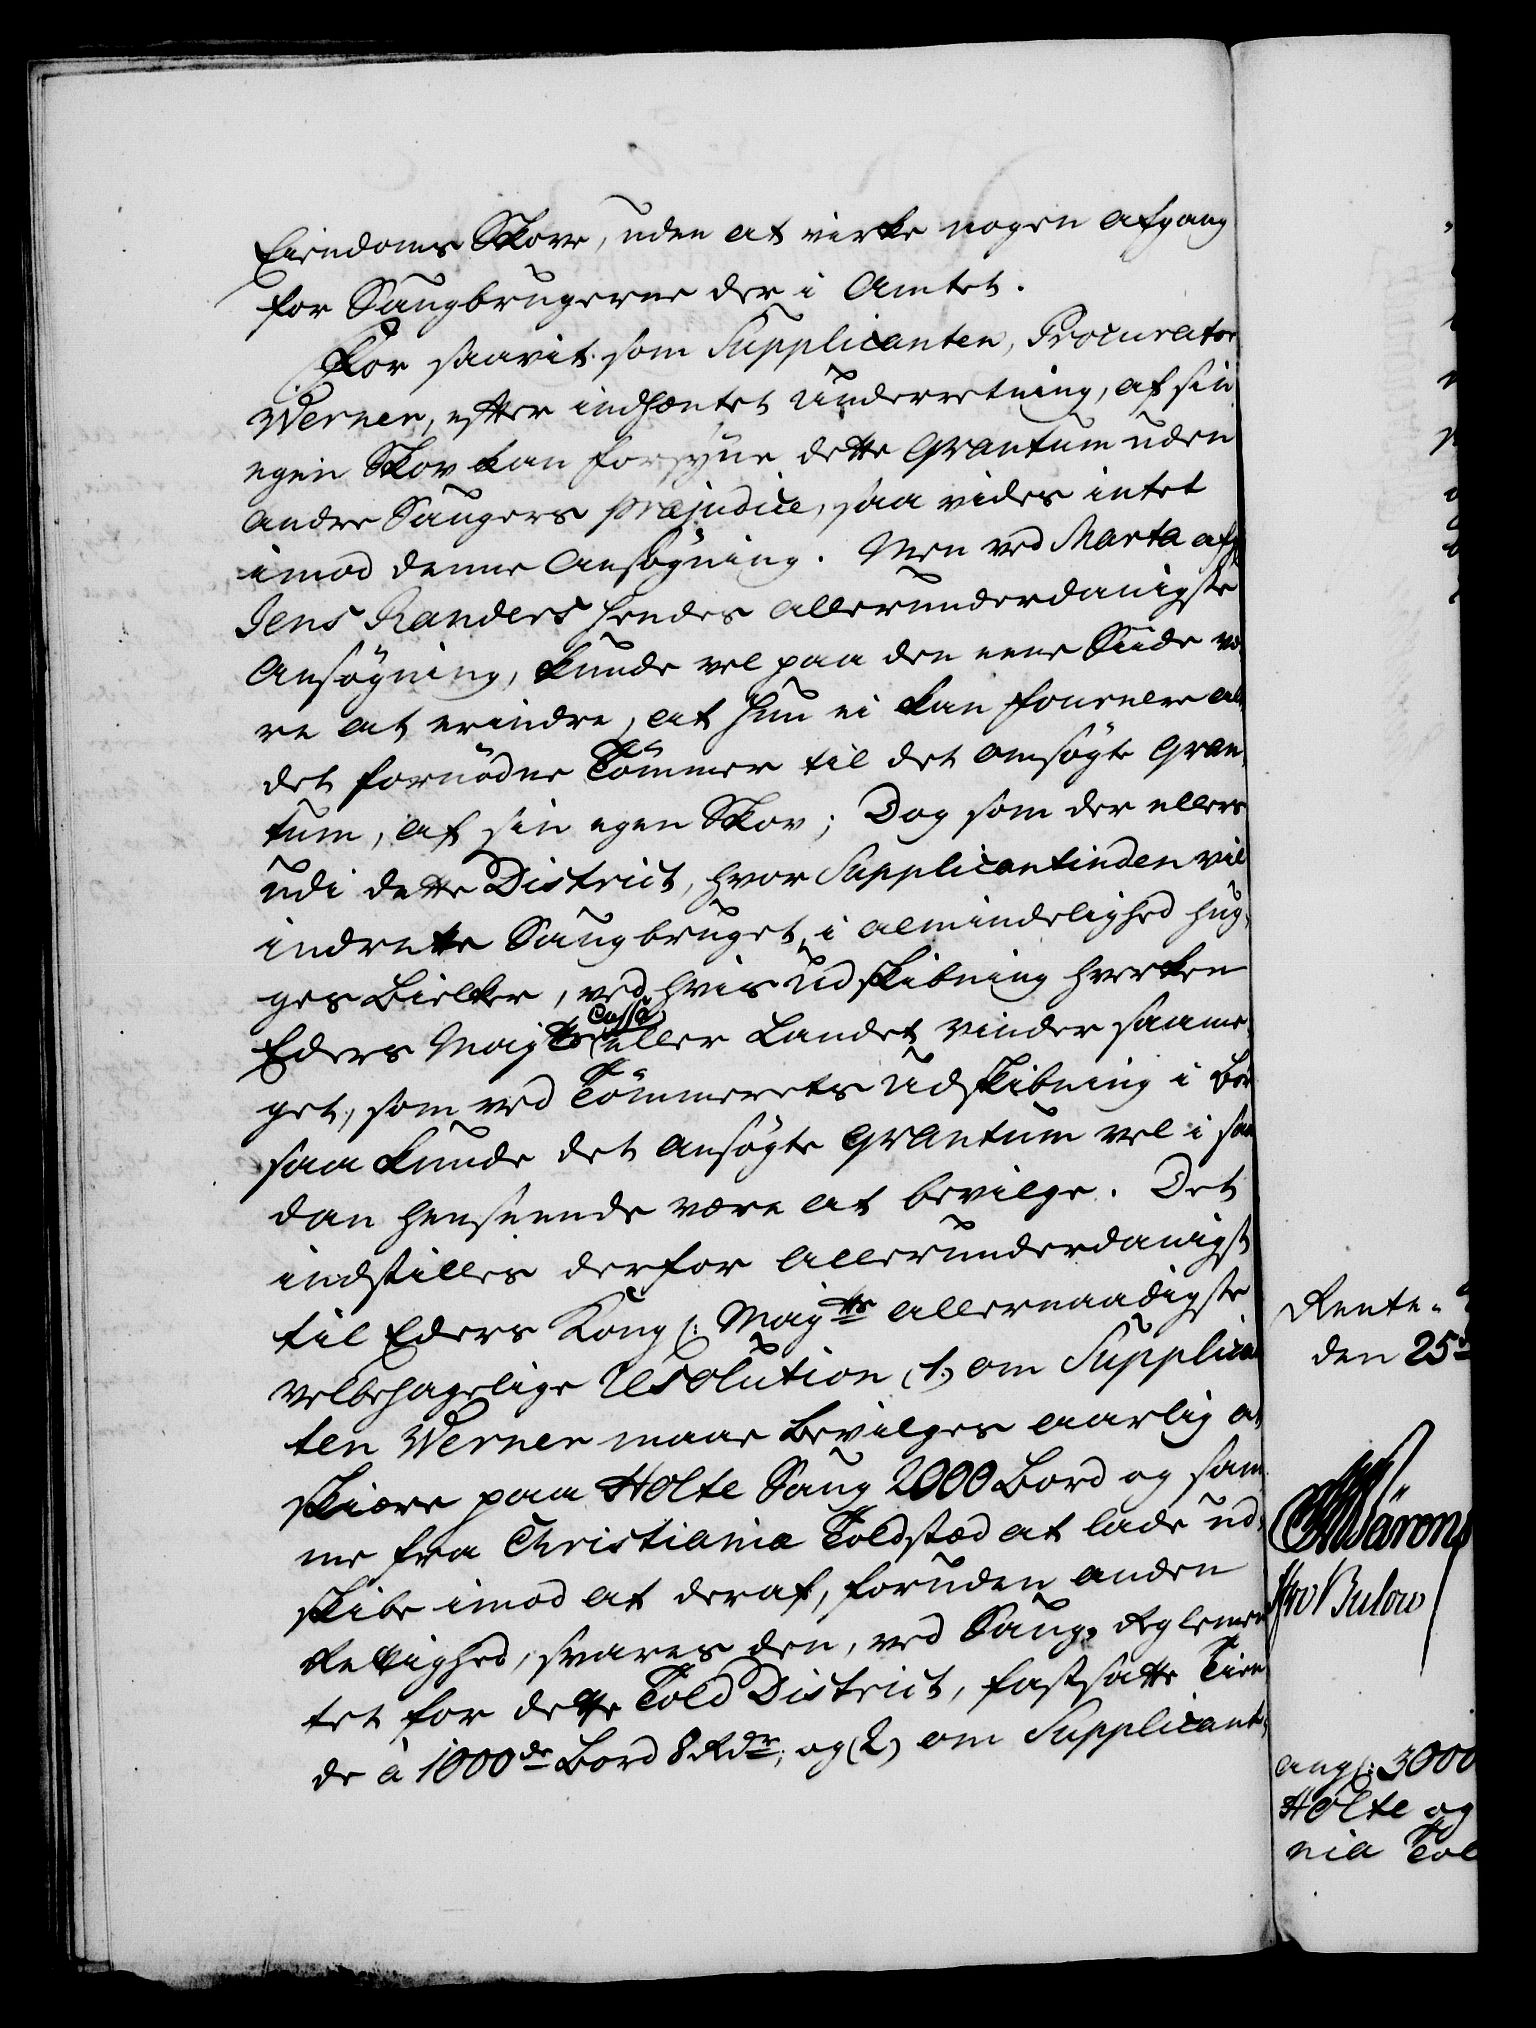 Eiendoms Skove, uden at virke nogen afgang
for Saugbrugerne der i Amtet.
For saavit som Supplicanten, Procurator
Werner, efter indhentet Underretning, af sin
egen Skov kan forsyne dette Qvantum uden
andre Saugers præjudice, saa vides intet
imod denne Ansøgning. Men ved Marta afg
Jens Randers hendes allerunderdanigste
Ansøgning, kunde vel paa den eene Siide væ
re at erindre, at hun ei kan fournere alt
det fornødne Tømmer til det ansøgte Qvan
tum, af sin egen Skov; Dog som der ellers
udi dette District, hvor Supplicantinden vil
indrette Saugbruget, i almindelighed hug,
ges Bielker, ved hvis Udskibning hverken
Eders Majts Cassa eller Landet vinder saame,
get, som ved Tømmerets Udskibning i Bor
saa kunde det ansøgte Qvantum vel i saa
dan henseende være at bevilge. Det
indstilles derfor allerunderdanigst
til Eders Kong: Majts allernaadigste
velbehagelige Resolution (1.) om Supplican
ten Werner maae bevilges aarlig at
skiære paa Holte Saug 2000 Bord og sam
me fra Christiania Toldstæd at lade ud,
skibe imod at deraf, foruden anden
Rettighed, svares den, ved Saug-Reglemen
tet for dette Told District, fastsatte Tien
de à 1000de Bord 8 Rdr; og (2) om Supplicant,
Rente-
den 25d
Bulow
ang: 3000
Holte og
nia Tol